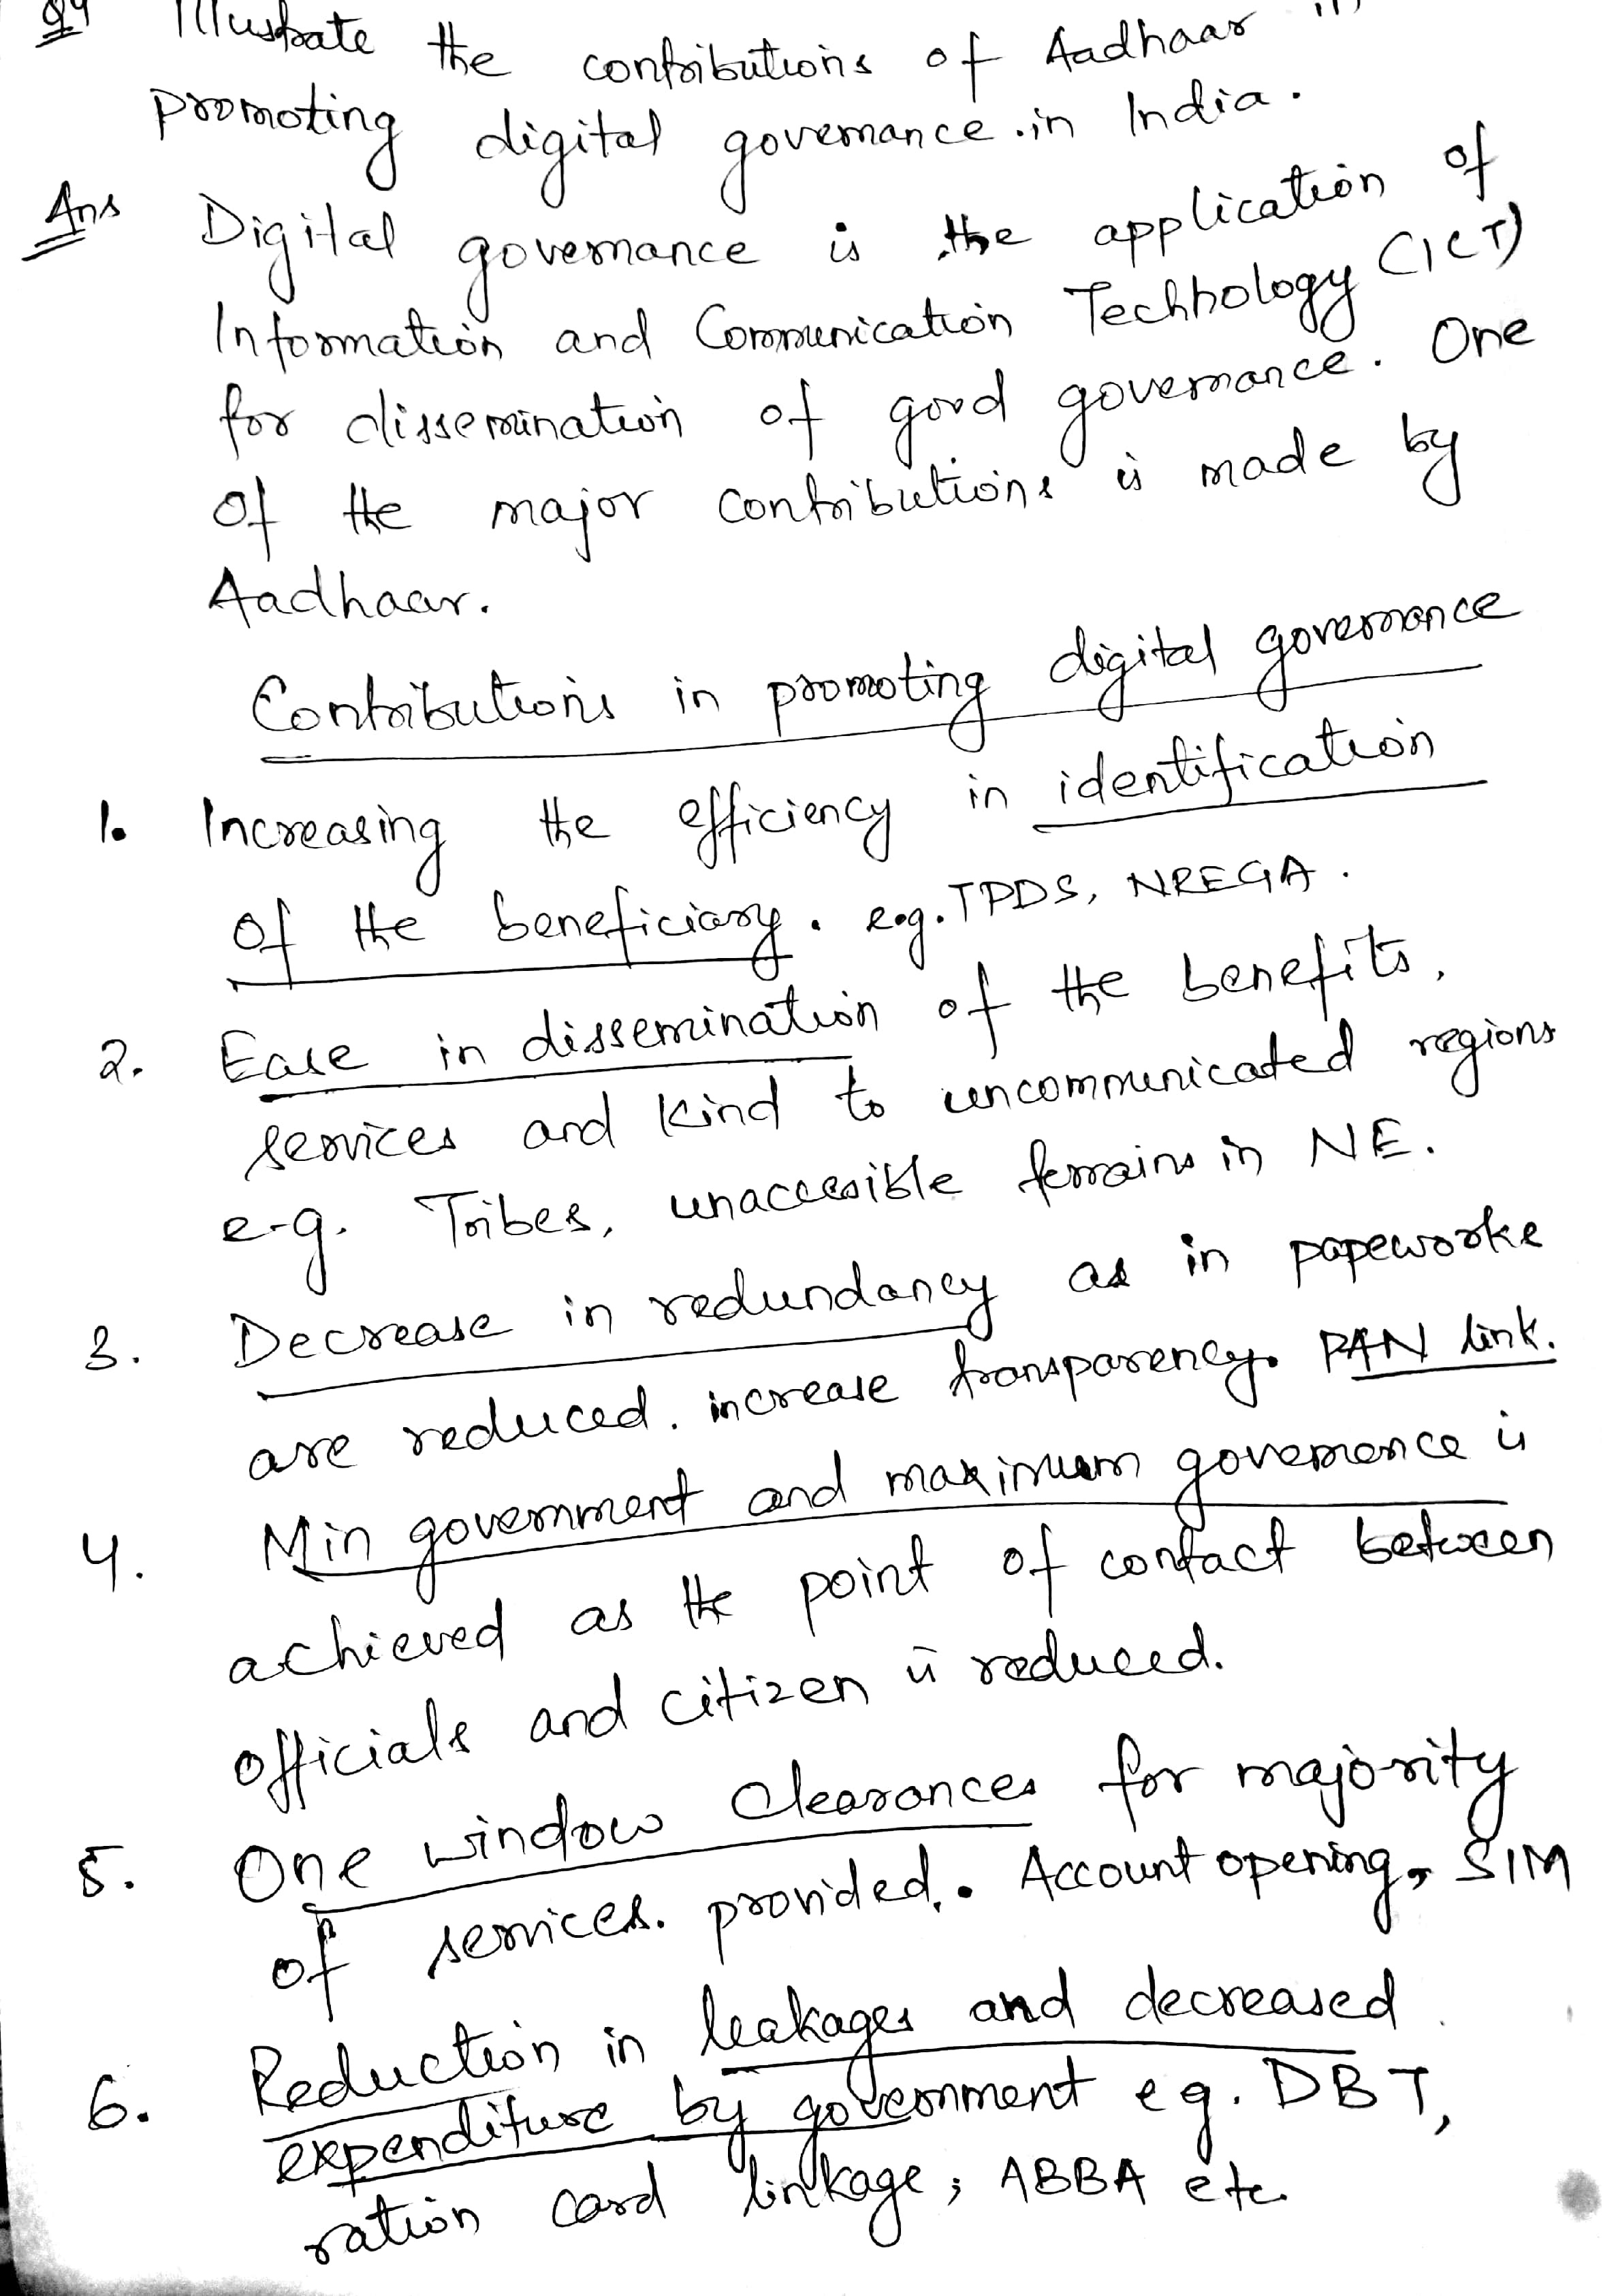 Q4 Illustrate the contributions of Aadhaar in
promoting digital governance in India.
Ans Digital governance is the application of
Information and Communication Technology (ICT)
for dissemination of good governance. One
of the major contributions is made by
Aadhaar.
Contributions in promoting digital governance
1. Increasing the efficiency in identification
of the beneficiary. e.g. TPDS, NREGA.
2. Ease in dissemination of the benefits,
services and kind to uncommunicated regions
e.g. Tribes, unaccessible terrains in NE.
3. Decrease in redundancy as in papeworke
are reduced. increase transparency. PAN link.
4. Min government and maximum governence is
achieved as the point of contact between
officials and citizen is reduced.
5. One window Clearances for majority
of services. provided. Account opening, SIM
6. Reduction in leakages and decreased
expenditure by government eg. DBT,
ration card linkage; ABBA etc.